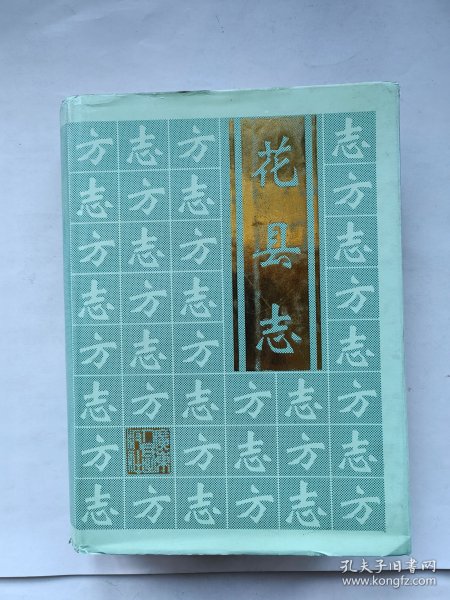 花县志
方志方志
志方志方
方志方志
志方志方
方志方志
志方志方志方
方志方志方志
志方志方志方
孔夫子旧书网
www.kongfz.com